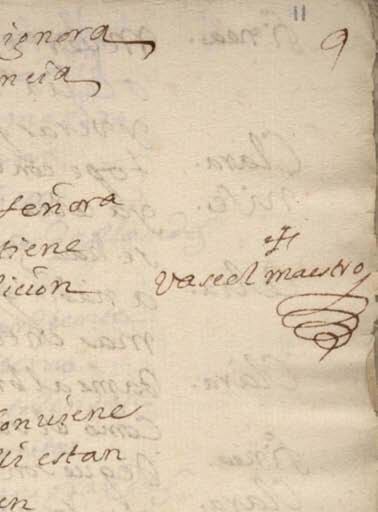 11
9
ignora
ncia
señora
tiene
licion
vase el maestro
conuiene
ui estan
en